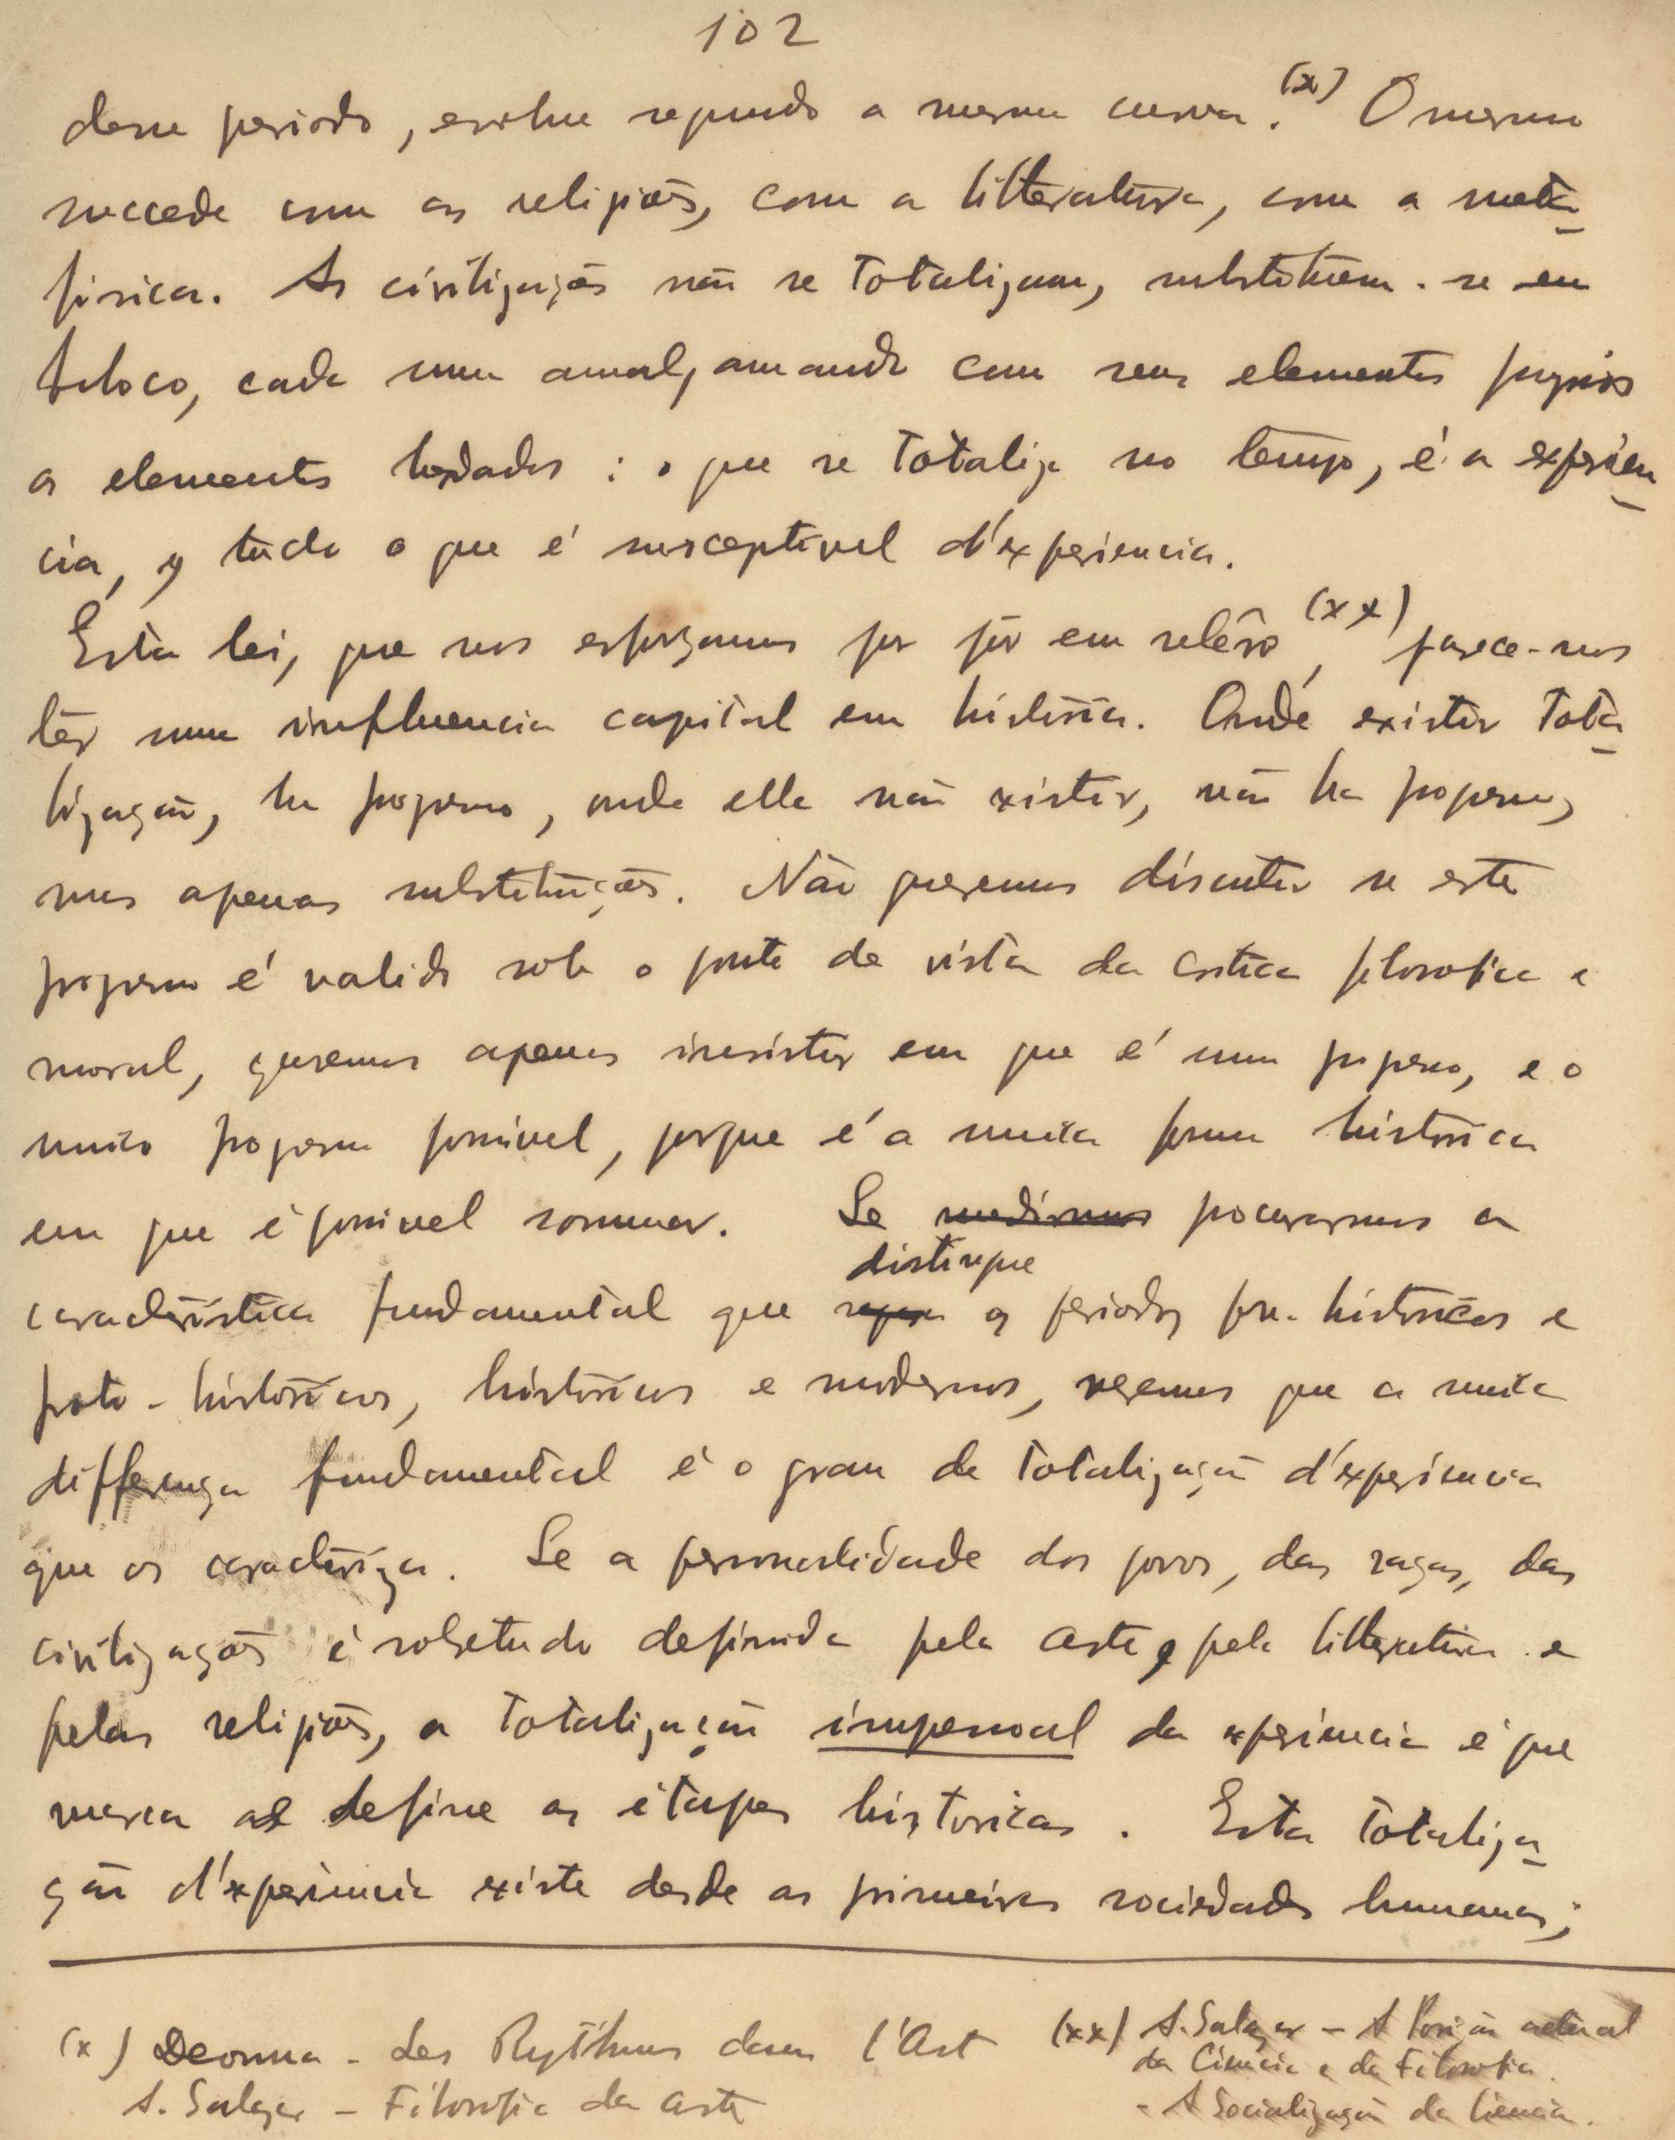 102
desse periodo, evolue segundo a mesma curva.(x) O mesmo
succede com as religiões, com a litteratura, com a meta-
fisica. As civilizações não se totalizam, substituem-se em
bloco, cada uma amalgamando com seus elementos proprios
os elementos herdados: o que se totaliza no tempo, é a experien-
cia, e tudo o que é susceptivel d'experiencia.
Esta lei, que nos esforçamos por pôr em relêvo (xx), parece-nos
têr uma influencia capital em historia. Onde existir tota-
lização, ha progresso, onde ella não existir, não ha progresso,
mas apenas substituições. Não queremos discutir se este
progresso é valido sob o ponto de vista da critica filosofica e
moral, queremos apenas insistir em que é um progresso, e o
unico progresso possivel, porque é a unica forma historica
em que é possivel sommar. Se medirmos procurarmos a
distingue
caracteristica fundamental que separa os periodos pre-historicos e
proto-historicos, historicos e modernos, veremos que a unica
differença fundamental é o grau de totalização d'experiencia
que os caracteriza. Se a personalidade dos povos, das raças, das
civilizações é sobretudo definida pela arte, pela litteratura e
pelas religiões, a totalização impessoal da experiencia é que
marca e define as étapes historicas. Esta totaliza-
ção d'experiencia existe desde as primeiras sociedades humanas;
(x) Deonna - Les Rythmes dans l'Art
A. Salazar - Filosofia da Arte
(xx) A. Salazar - A Posição actual
da Ciencia e da Filosofia.
- A Socialização da Ciencia.